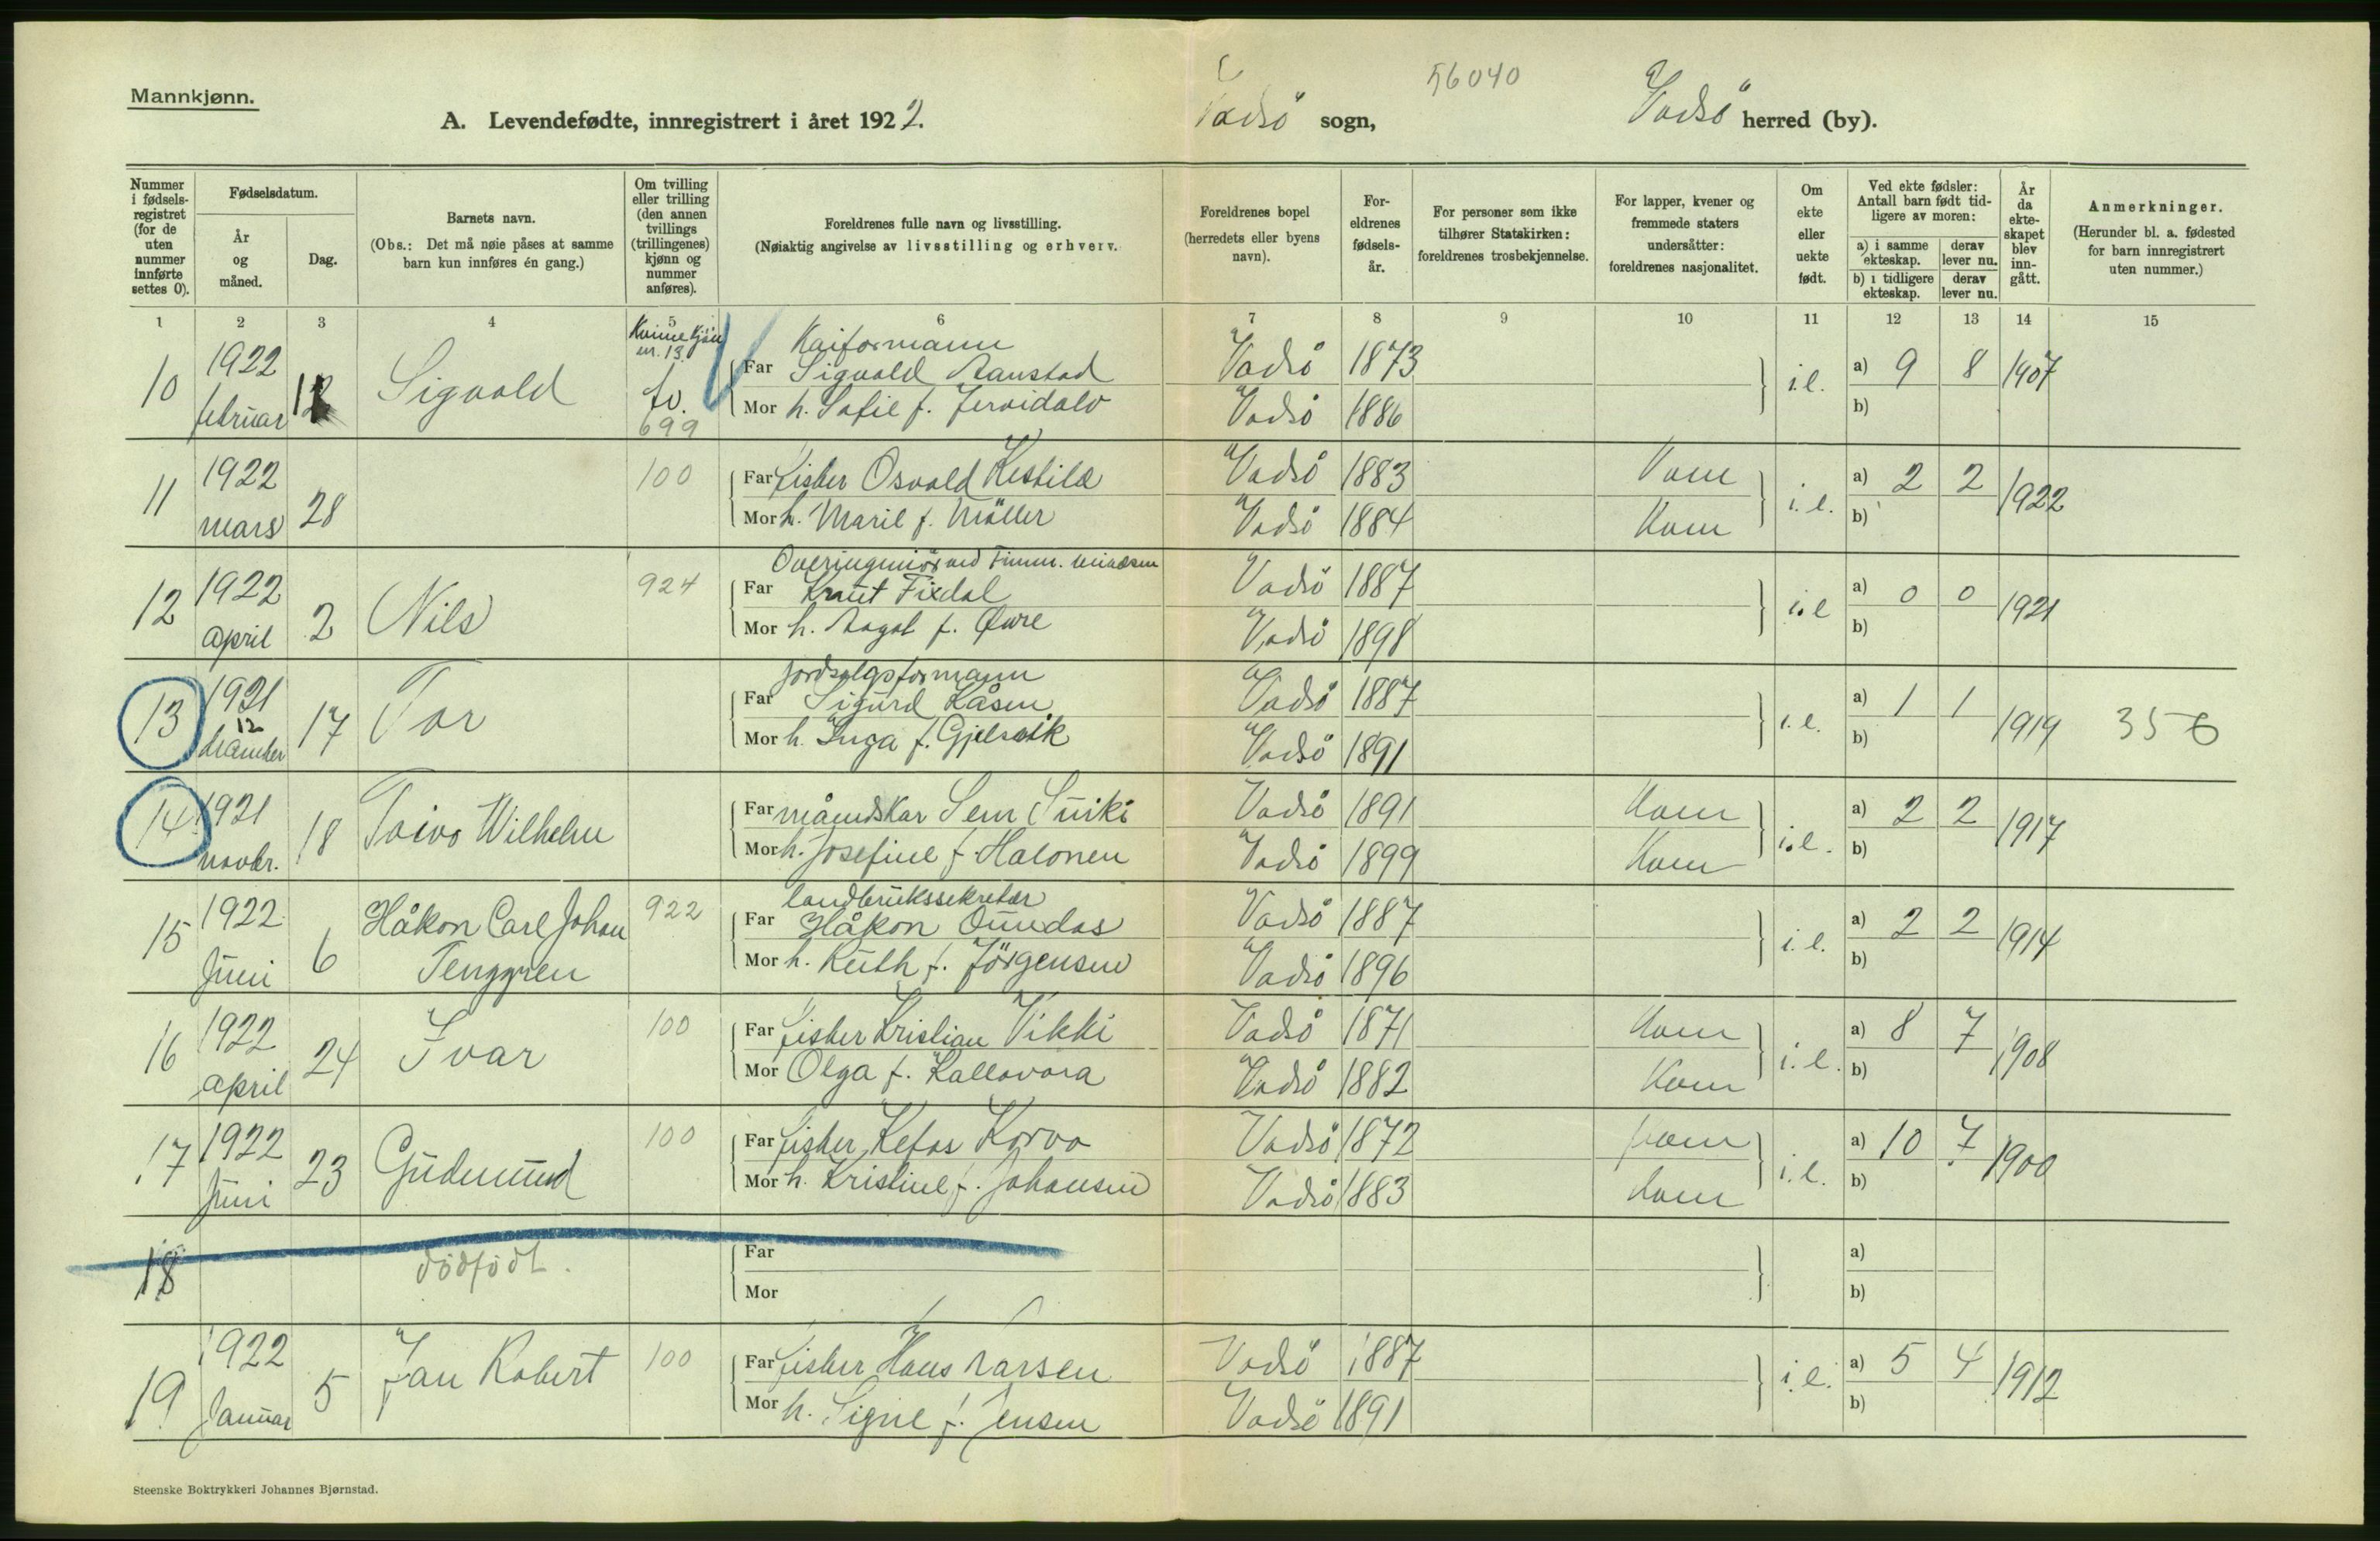 Mannkjønn.
A. Levendefødte, innregistrert i året 1922.
Vadsö sogn,
56040
Vadsö herred (by).
Nummer i fødselsregistret (for de uten nummer innførte settes 0).
Fødselsdatum.
År og måned.
Dag.
Barnets navn.
(Obs.: Det må nøie påses at samme barn kun innføres én gang.)
Om tvilling eller trilling (den annen tvillings (trillingenes) kjønn og nummer anføres).
Foreldrenes fulle navn og livsstilling.
(Nøiaktig angivelse av livsstilling og erhverv.
Foreldrenes bopel (herredets eller byens navn).
Foreldrenes fødselsår.
For personer som ikke tilhører Statskirken: foreldrenes trosbekjennelse.
For lapper, kvener og fremmede staters undersåtter: foreldrenes nasjonalitet.
Om ekte eller uekte født.
Ved ekte fødsler: Antall barn født tidligere av moren:
a) i samme ekteskap.
derav lever nu.
b) i tidligere ekteskap.
derav lever nu.
År da ekteskapet blev inngått.
Anmerkninger.
(Herunder bl. a. fødested for barn innregistrert uten nummer.)
1 2 3 4 5 6 7 8 9 10 11 12 13 14 15
10 1922 februar Sigvald
Kvinnekjön nr. 13
tv.
699
Kaiformann
Far Sigvald Aanstad Vadsö 1873 i.e. a) 9 8 1907
Mor h. Sofie f. Vadsö 1886 b)
11 1922 mars 28 100
Far fisker Osvald Kestila Vadsö 1883 Kvæn i. e. a) 2 2 1922
Mor h. Marie f. Möller Vadsö 1884 Kvæn b)
12 1922 april 2 Nils 924
Overingeniör ved
Far Knut Fixdal Vadsö 1887 i.e a) 0 0 1921
Mor h. Aagot f. Øwre Vadsö 1898 b)
13 1921 12 desember 17 Tor
Far Sigurd Kåsen Vadsö 1887 i.e. a) 1 1 1919 356
Mor h. Inga f. Gjelsvik Vadsö 1891 b)
14 1921 novbr. 18 Toivo Wilhelm
Far Vadsö 1891 Kvæn i.e. a) 2 2 1917
Mor h. Josefine f. Halonen Vadsö 1899 Kvæn b)
15 1922 Juni 6 Håkon Carl Johan Tenggren 922
landbrukssekretær
Far Håkon Vadsö 1887 i.e. a) 2 2 1914
Mor h. Ruth f. Jörgensen Vadsö 1896 b)
16 1922 april 24 Ivar 100
Far fisker Kristian Vikki Vadsö 1871 Kvæn i.e. a) 8 7 1908
Mor Olga f. Kallavara Vadsö 1882 Kvæn b)
17 1922 Juni 23 Gudmund 100
Far fisker Kefas Korva Vadsö 1872 Kvæn i.e. a) 10 7 1900
Mor h. Kristine f. Johansen Vadsö 1883 Kvæn b)
18 dödfödt.
Far a)
Mor b)
19 1922 Januar 5 Jan Robert 100
Far fisker Hans Larsen Vadsö 1887 i.e. a) 5 4 1912
Mor h. Signe f. Jensen Vadsö 1891 b)
Steenske Boktrykkeri Johannes Bjørnstad.